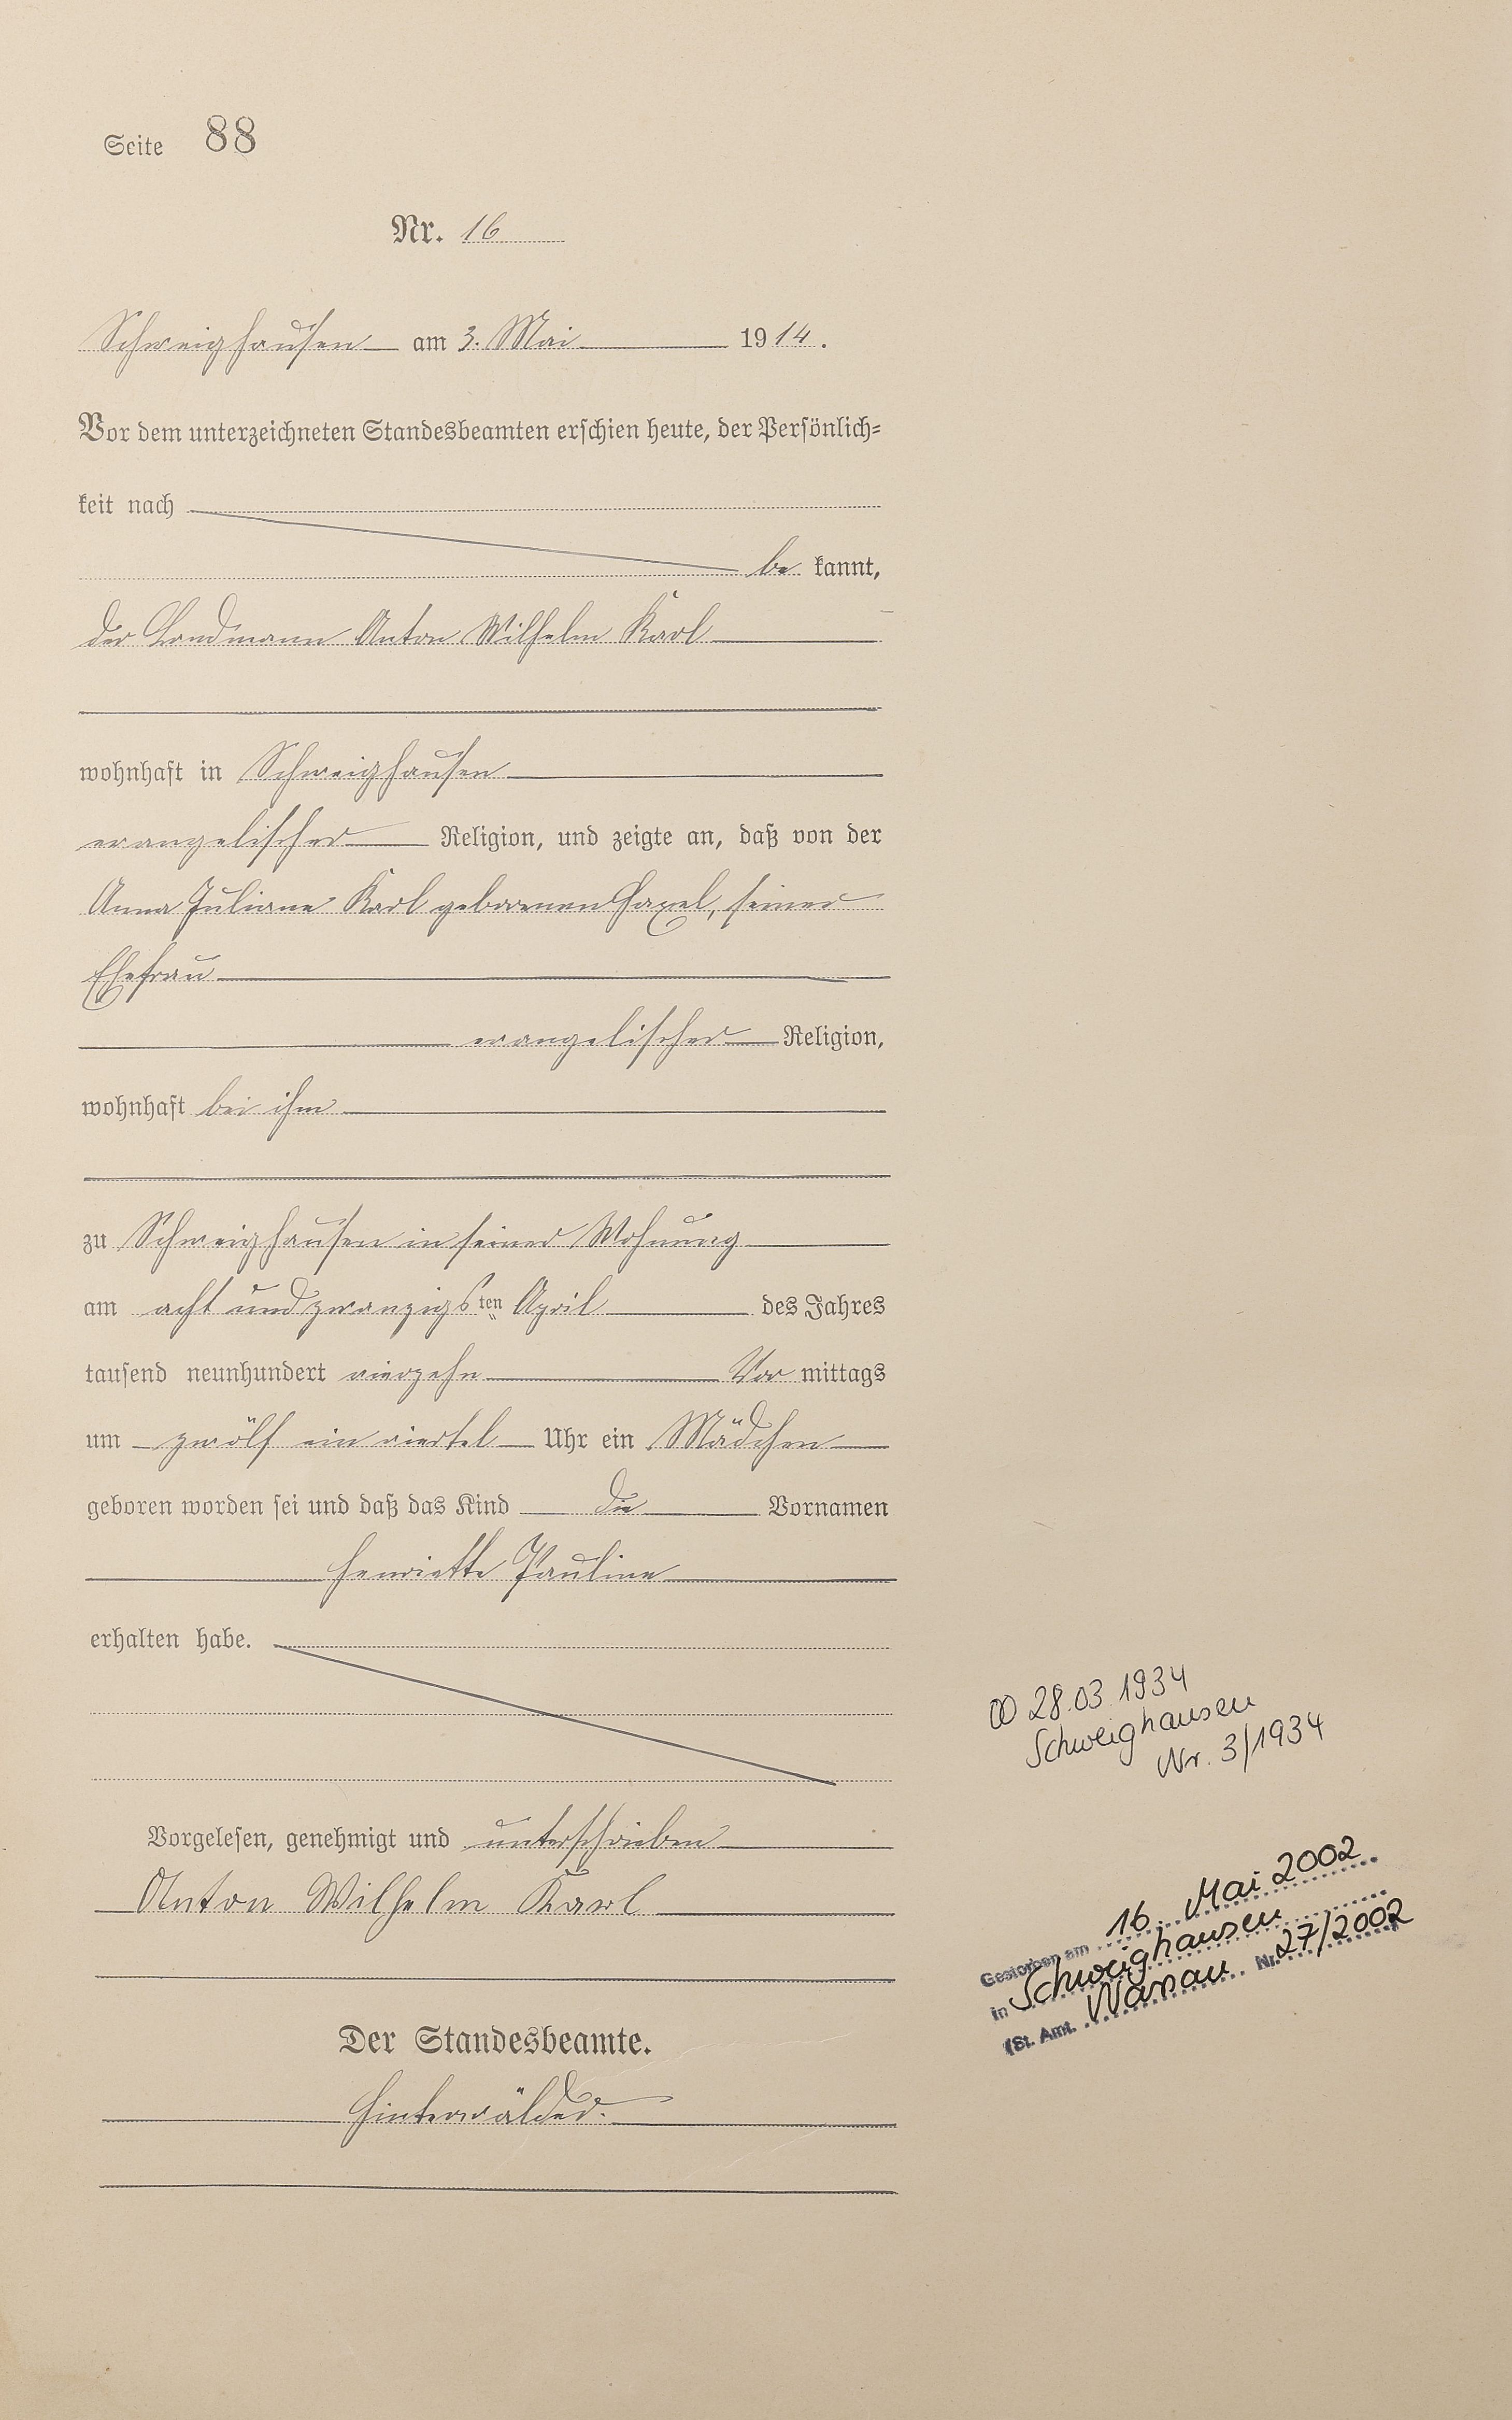 Seite 88
Nr. 16
Schweighausen am 3. Mai 1914.
Vor dem unterzeichneten Standesbeamten erschien heute, der Persönlich-
keit nach
be kannt,
der Landmann Anton Wilhelm Karl
wohnhaft in Schweighausen
evangelischer Religion, und zeigte an, daß von der
Anna Juliane Karl geborenen Haxel, seiner
Ehefrau
evangelischer Religion,
wohnhaft bei ihm
zu Schweighausen in seiner Wohnung
am acht und zwanzigsten April des Jahres
tausend neunhundert vierzehn Vor mittags
um zwölf ein viertel Uhr ein Mädchen
geboren worden sei und daß das Kind die Vornamen
Henriette Pauline
erhalten habe.
Vorgelesen, genehmigt und unterschrieben
Anton Wilhelm Karl
Der Standesbeamte.
Hinterwälder.
∞ 28.03.1934
Schweighausen
Nr. 3/1934
Gestorben am 16. Mai 2002
in Schweighausen
(St. Amt. Nassau Nr. 27/2002